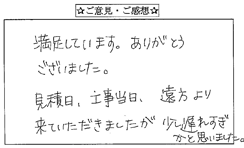 ☆ご意見・ご感想☆
満足しています。ありがとう
ございました。
見積日、工事当日、遠方より
来ていただきましたが少し遅れすぎ
かと思いました。